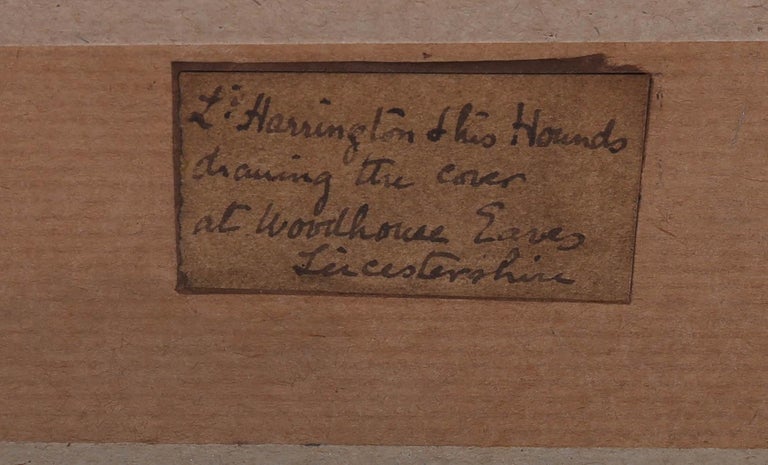 Ld: Harrington & his Hounds
drawing the cover
at Woodhouse Eaves
Leicestershire